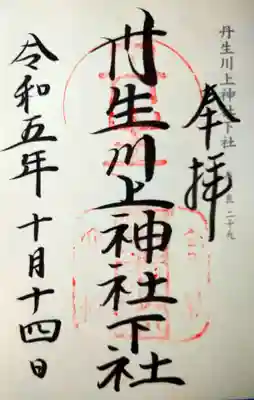 丹生川上神社下社
奉拝
丹生川上神社下社
令和五年十月十四日